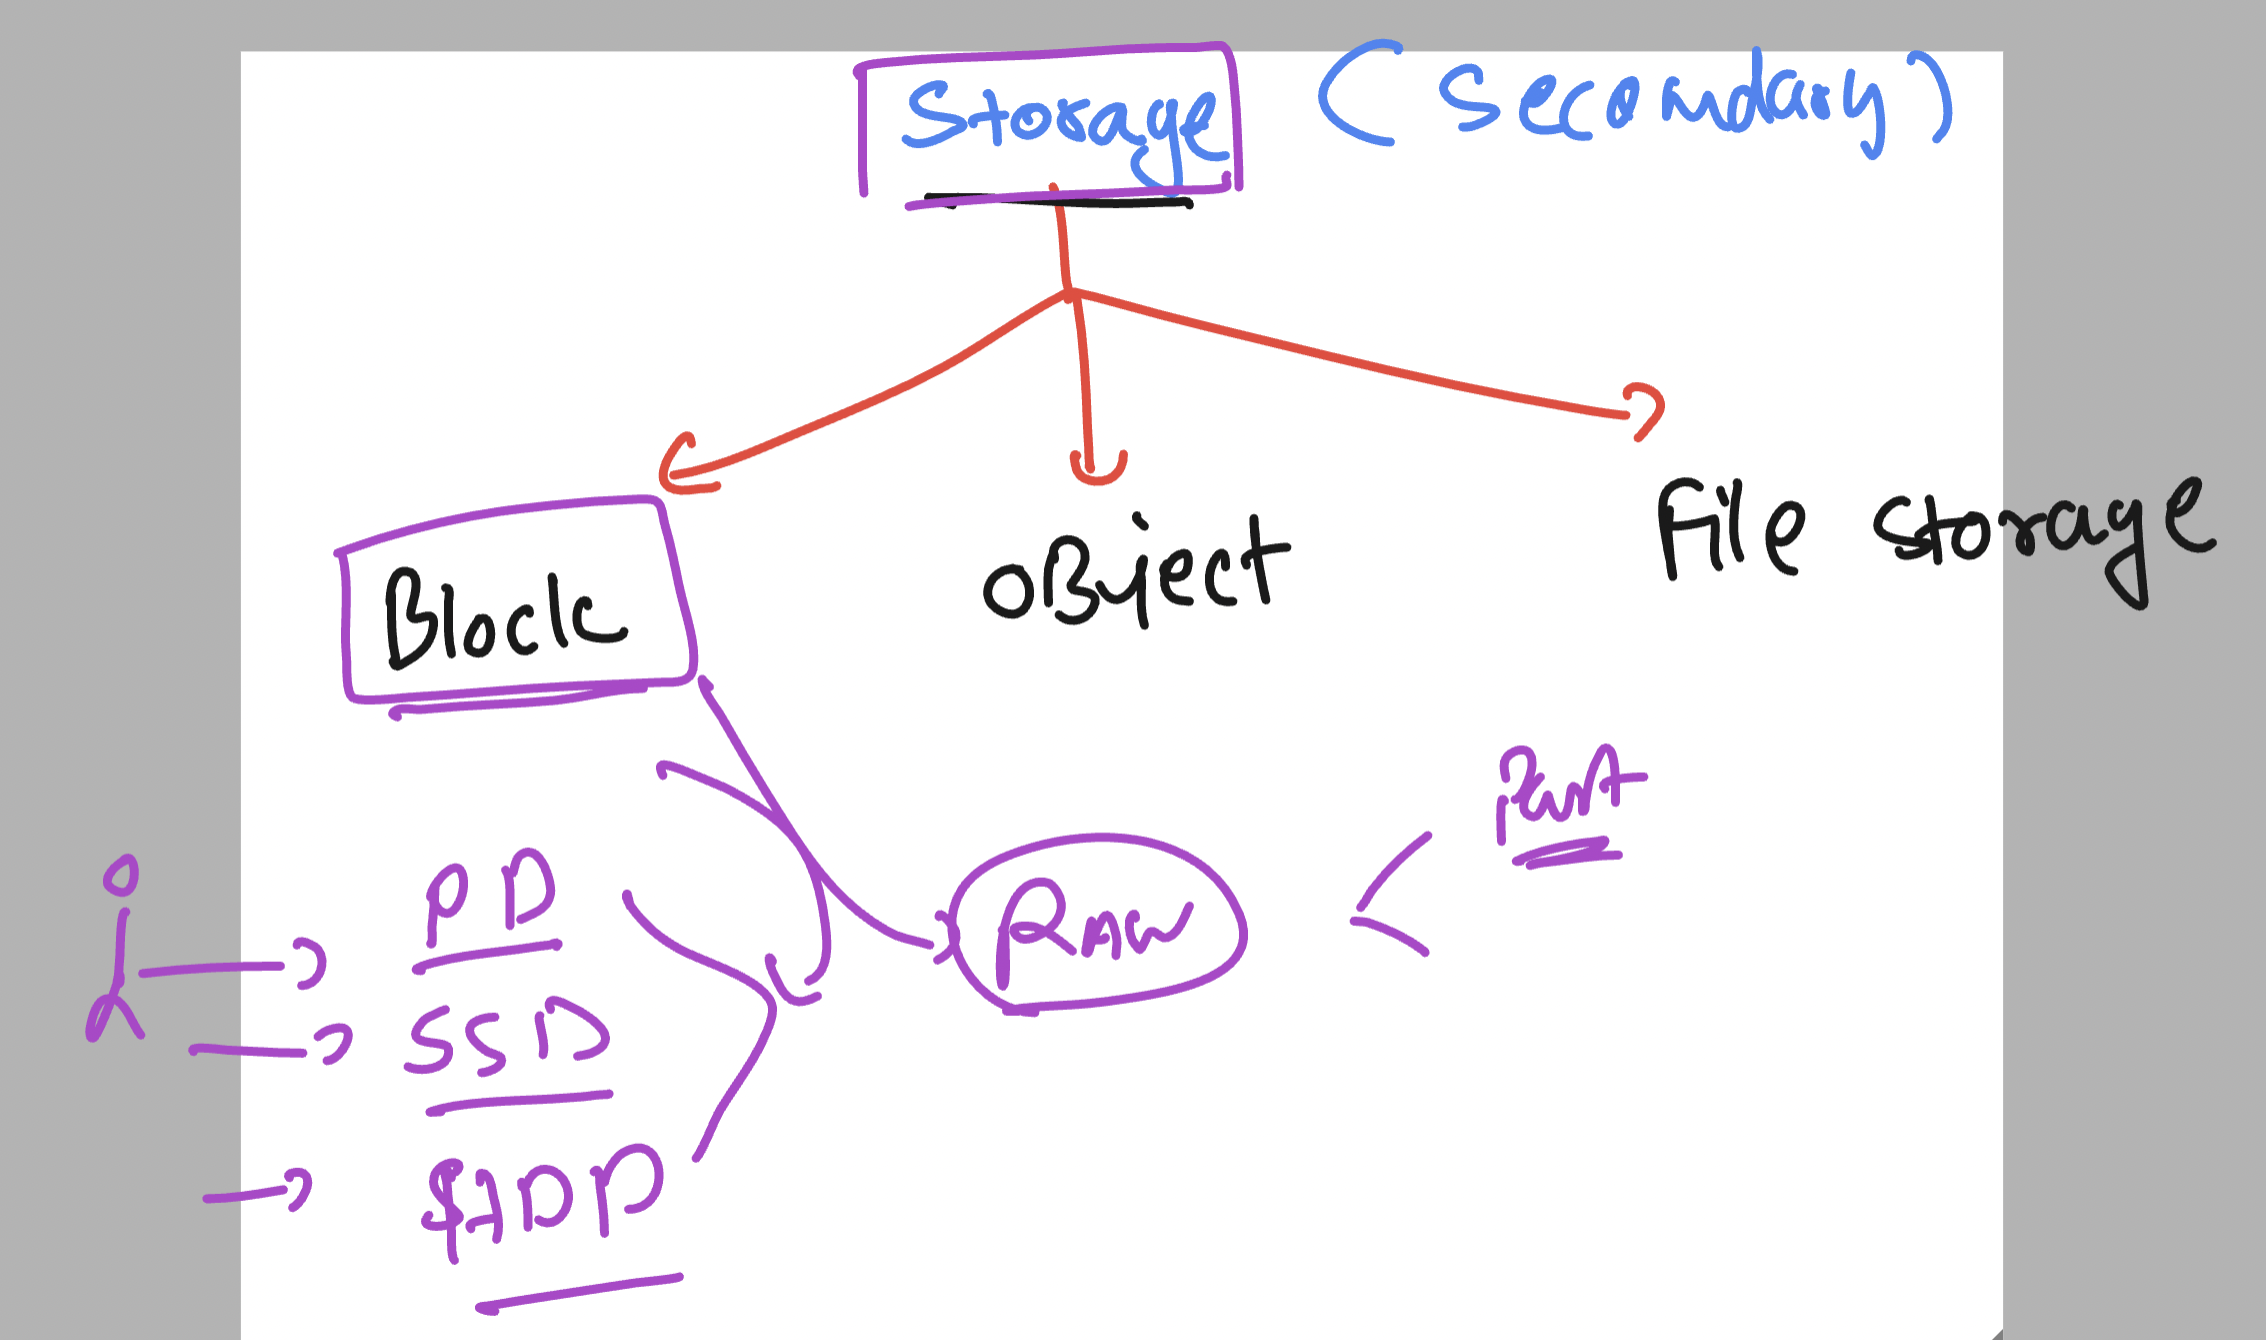 Storage (Secondary)
Block
OBject
File storage
PD
SSD
HDD
Raw
Part